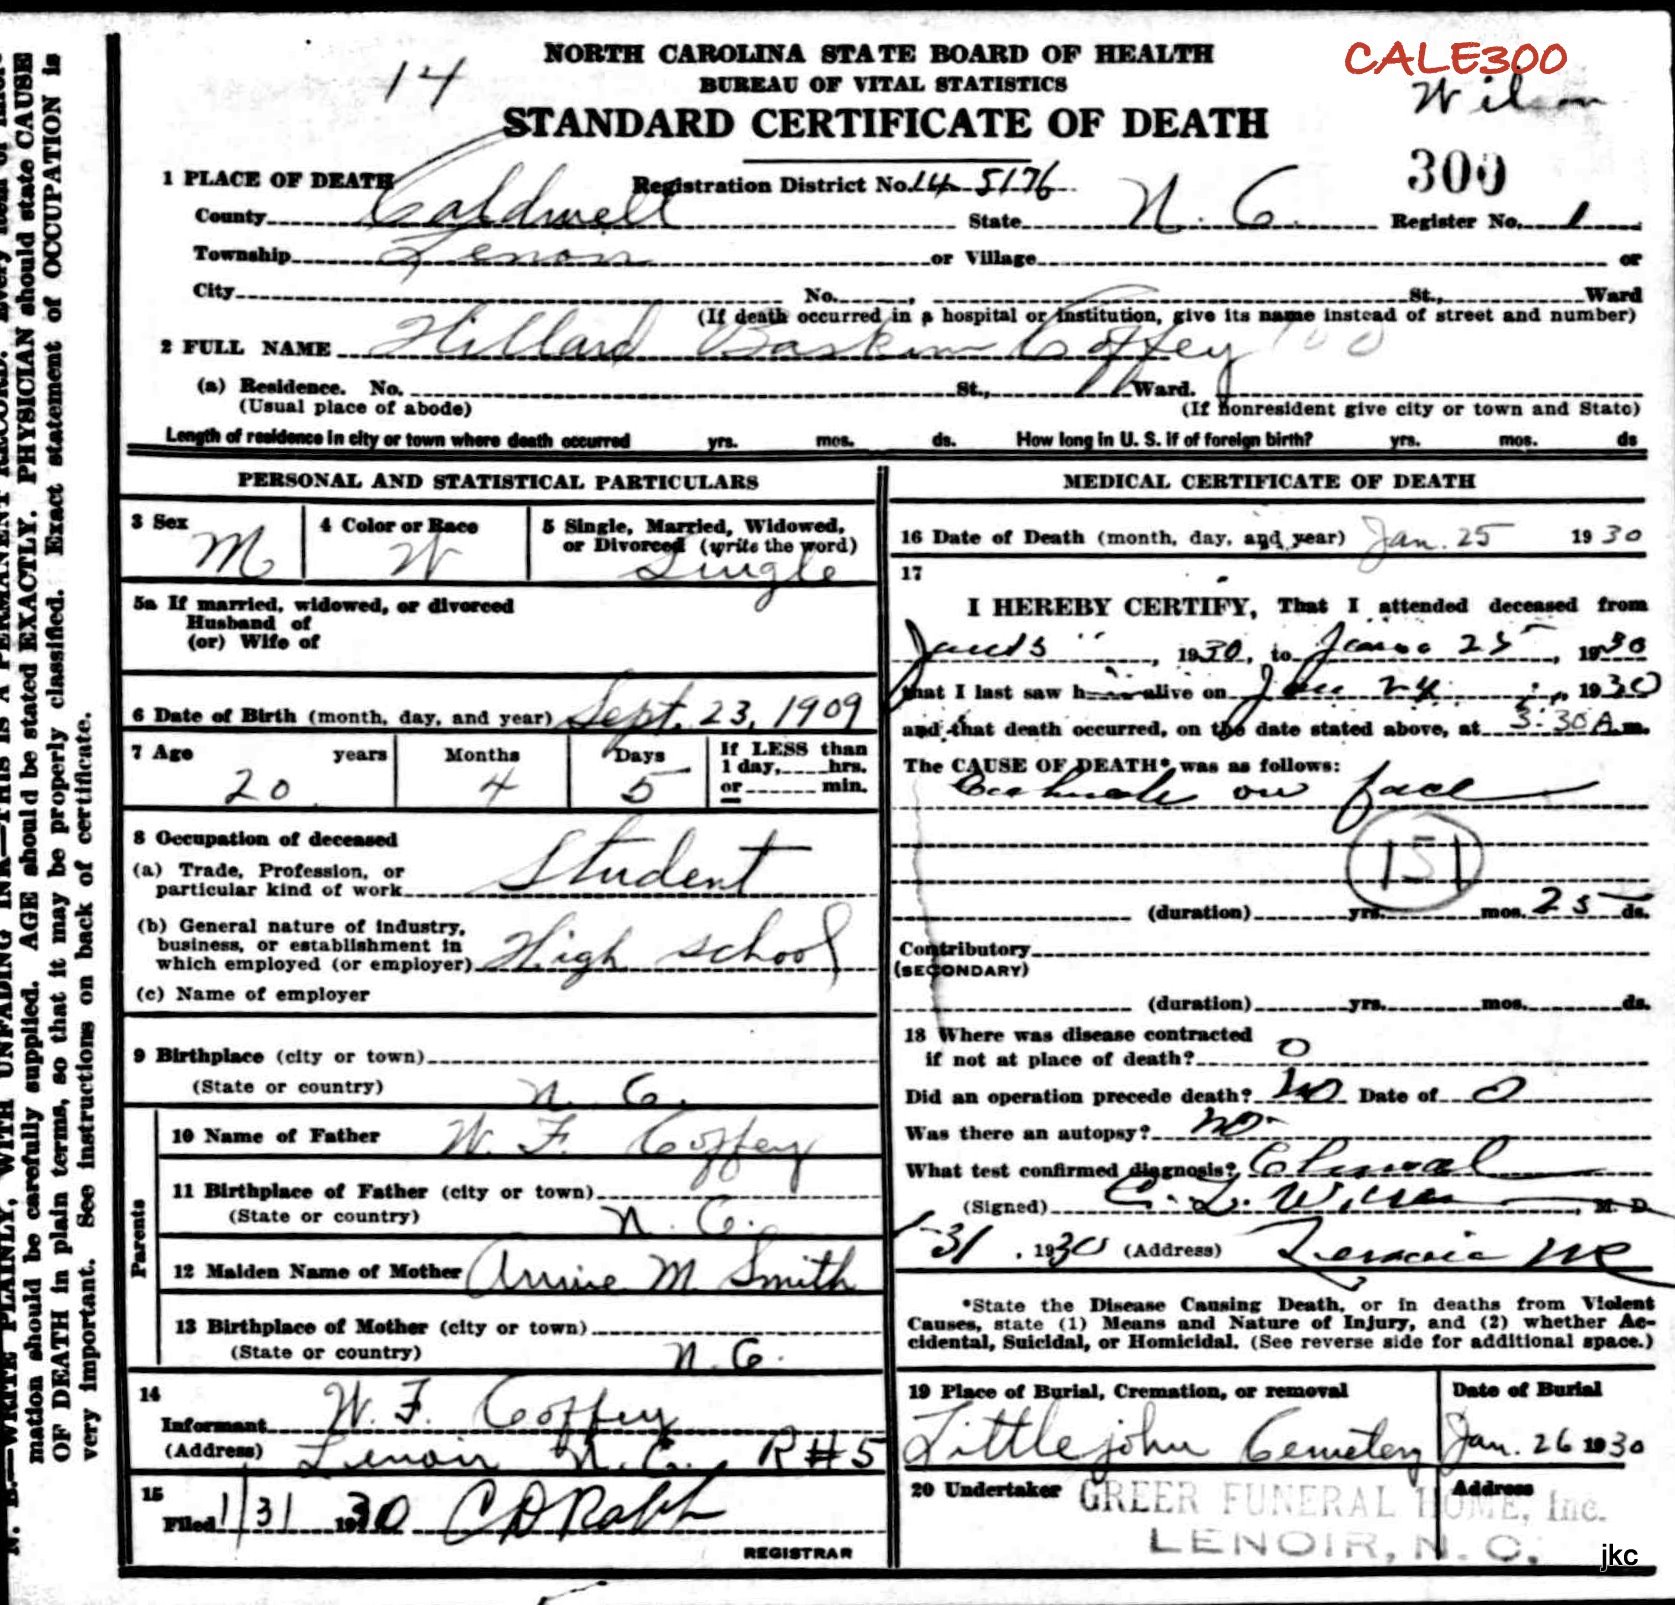 NORTH CAROLINA STATE BOARD OF HEALTH
CALE300
14
BUREAU OF VITAL STATISTICS
Wilson
STANDARD CERTIFICATE OF DEATH
300
1 PLACE OF DEATH
Registration District No. 14-5176
County Caldwell State N. C. Register No. 1
Township Lenoir or Village or
City No. , St., Ward
(If death occurred in a hospital or institution, give its name instead of street and number)
2 FULL NAME Hillard Baskim Coffey
(a) Residence. No. St., Ward.
(Usual place of abode) (If nonresident give city or town and State)
Length of residence in city or town where death occurred yrs. mos. ds. How long in U. S. if of foreign birth? yrs. mos. ds
PERSONAL AND STATISTICAL PARTICULARS
3 Sex M
4 Color or Race W
5 Single, Married, Widowed,
or Divorced (write the word)
Single
5a If married, widowed, or divorced
Husband of
(or) Wife of
6 Date of Birth (month, day, and year) Sept. 23, 1909
7 Age years Months Days
20 4 5
If LESS than
1 day, hrs.
or min.
8 Occupation of deceased
(a) Trade, Profession, or
particular kind of work Student
(b) General nature of industry,
business, or establishment in
which employed (or employer) High school
(c) Name of employer
9 Birthplace (city or town)
(State or country) N. C.
Parents
10 Name of Father W. F. Coffey
11 Birthplace of Father (city or town)
(State or country) N. C.
12 Maiden Name of Mother Annie M. Smith
13 Birthplace of Mother (city or town)
(State or country) N. C.
14
Informant W. F. Coffey
(Address) Lenoir N. C. R#5
15
Filed 1/31 1930
REGISTRAR
MEDICAL CERTIFICATE OF DEATH
16 Date of Death (month, day, and year) Jan. 25 1930
17
I HEREBY CERTIFY, That I attended deceased from
, 1930, to 25, 1930
that I last saw h alive on Jan 24, 1930
and that death occurred, on the date stated above, at 3:30 A.m.
The CAUSE OF DEATH* was as follows:
on face
151
(duration) yrs. mos. 25 ds.
Contributory
(SECONDARY)
(duration) yrs. mos. ds.
18 Where was disease contracted
if not at place of death? 0
Did an operation precede death? no Date of 0
Was there an autopsy? no
What test confirmed diagnosis? Clinical
(Signed) C. L. Wilson, M. D.
31, 1930 (Address) Lenoir NC
*State the Disease Causing Death, or in deaths from Violent
Causes, state (1) Means and Nature of Injury, and (2) whether Ac-
cidental, Suicidal, or Homicidal. (See reverse side for additional space.)
19 Place of Burial, Cremation, or removal
Littlejohn Cemetery
Date of Burial
Jan. 26 1930
20 Undertaker
Address
GREER FUNERAL HOME, Inc.
LENOIR, N. C.
jkc
N. B.—WRITE PLAINLY, WITH UNFADING INK—THIS IS A PERMANENT RECORD. Every item of
mation should be carefully supplied. AGE should be stated EXACTLY. PHYSICIAN should state CAUSE
OF DEATH in plain terms, so that it may be properly classified. Exact statement of OCCUPATION is
very important. See instructions on back of certificate.